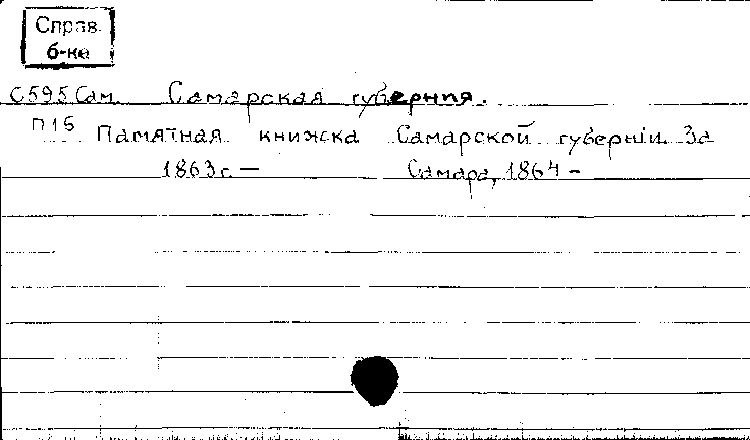 Справ.
б-ка
С595 Сам. Самарская губерния.
П15 Памятная книжка Самарской губернiи. За
1863 г. — Самара, 1864 -